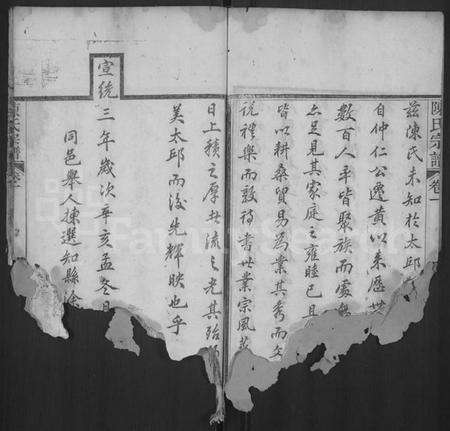 陳氏宗譜 卷一
茲陳氏未知於太邱
自仲仁公遷黄以来歷世
數百人平皆聚族而處
亦足見其家庭之雍睦已且
皆以耕桑貿易為業其秀而文
說禮樂而敦詩書世業宗風
日上積之厚者流之光其殆
美太邱而後先輝映也乎
宣統三年歲次辛亥孟冬月
同邑舉人揀選知縣
陳氏宗譜 卷一